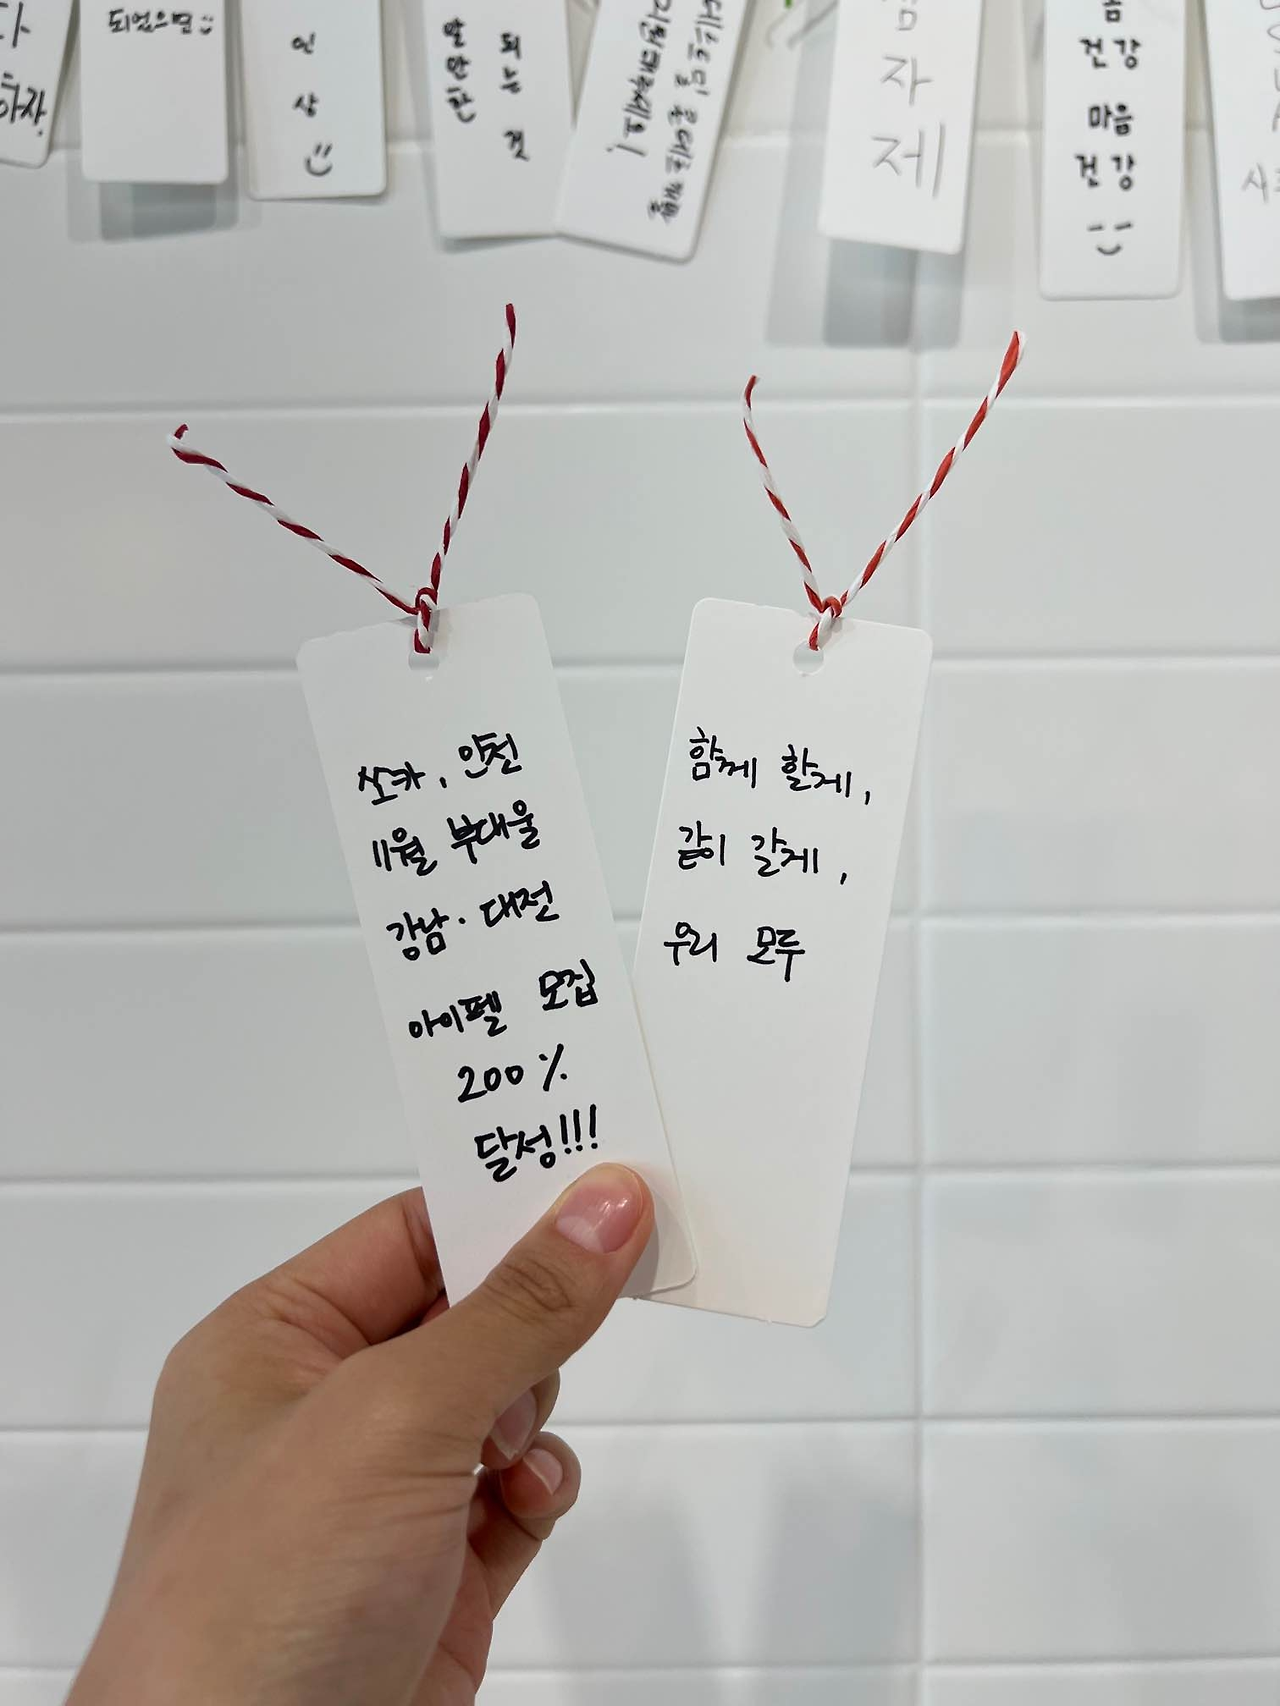 되었으면 :)
인
상
알
만
한
되
는
것
지원해주세요!
감
자
제
몸
건강
마음
건강
쏘카, 인천
11월 부대울
강남·대전
아이펠 모집
200%
달성!!!
함께 할게,
같이 갈게,
우리 모두